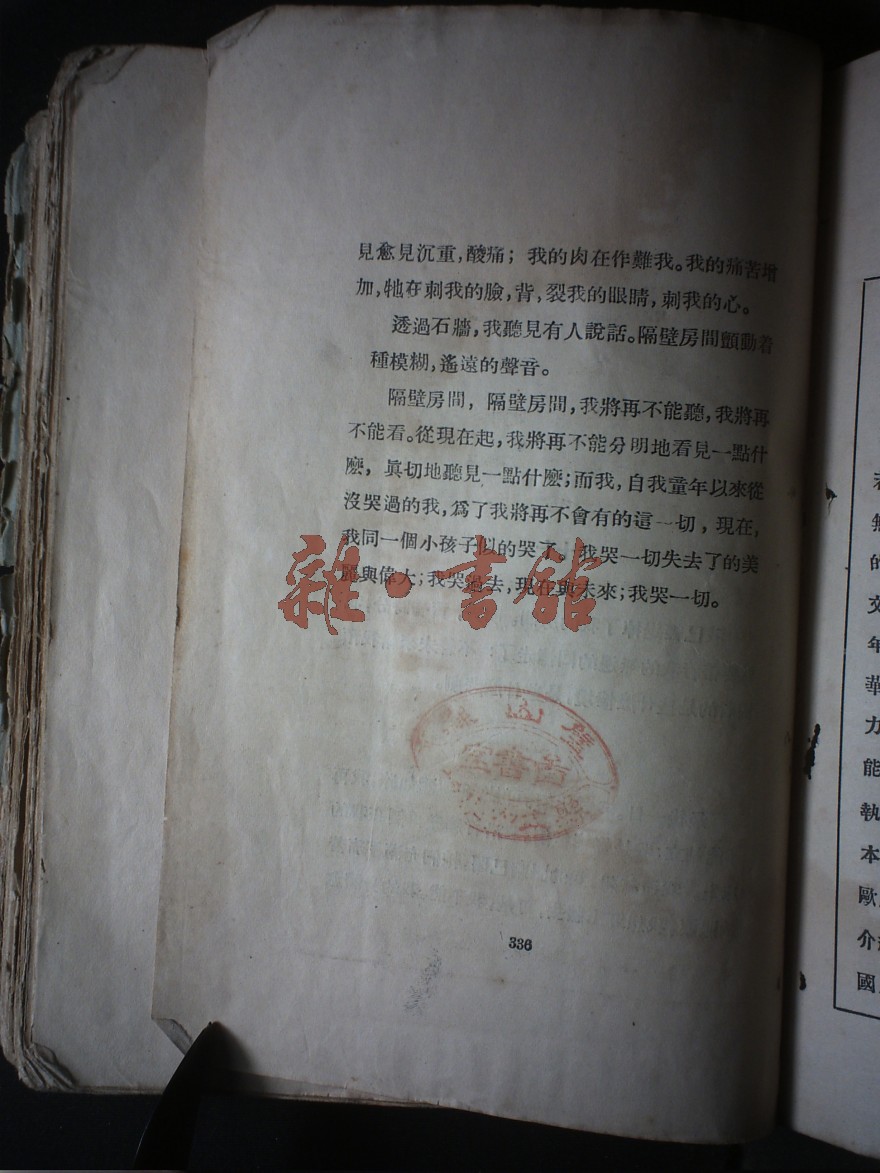 見愈見沉重，酸痛；我的肉在作難我。我的痛苦增
加，牠在刺我的臉，背，裂我的眼睛，刺我的心。
透過石牆，我聽見有人說話。隔壁房間顫動着
種模糊，遙遠的聲音。
隔壁房間，隔壁房間，我將再不能聽，我將再
不能看。從現在起，我將再不能分明地看見一點什
麼，眞切地聽見一點什麼；而我，自我童年以來從
沒哭過的我，爲了我將再不會有的這一切，現在，
我同一個小孩子似的哭了。我哭一切失去了的美
麗與偉大；我哭過去，現在與未來；我哭一切。
雜·書館
336
無
的
文
年
華
力
能
執
本
歐
介
國